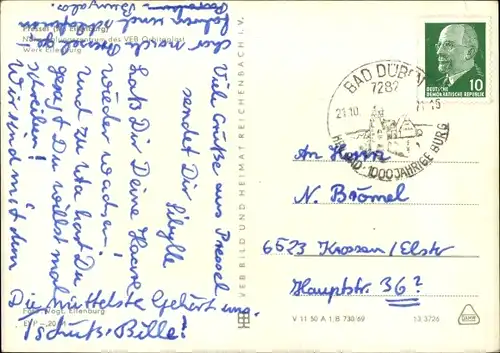 Pressel (Kr. Eilenburg)
Naherholungszentrum des VEB
Werk Eilenburg
Viele Grüße aus Pressel
sendet Dir Sibylle
Laß Dir Deine Haare
wieder wachsen!
Und zu Uta hat Du
gesagt Du willst mal
schreiben!
Wir sind mit dem
fahren und
Bungalo.
Die mittelste Gehört uns.
Tschüß Bille!
Foto: Vogt, Eilenburg
VEB BILD UND HEIMAT REICHENBACH I. V.
BAD DÜBEN
7282
21.10
1000 JÄHRIGE BURG
DEUTSCHE
DEMOKRATISCHE REPUBLIK
10
An Herrn
N. Brömel
6523 Krossen/Elstr
Hauptstr. 36?
V 11 50 A 1/B 730/69
13 3726